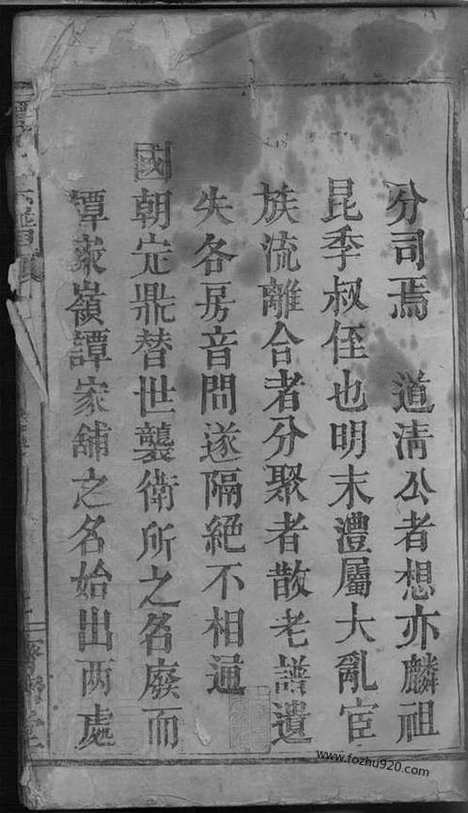 分司焉　道清公者想亦麟祖
昆季叔侄也明末澧屬大亂宦
族流離合者分聚者散老譜遺
失各房音問遂隔絕不相通
國朝定鼎替世襲衛所之名廢而
譚家嶺譚家舖之名始出两處
www.fozhu920.com